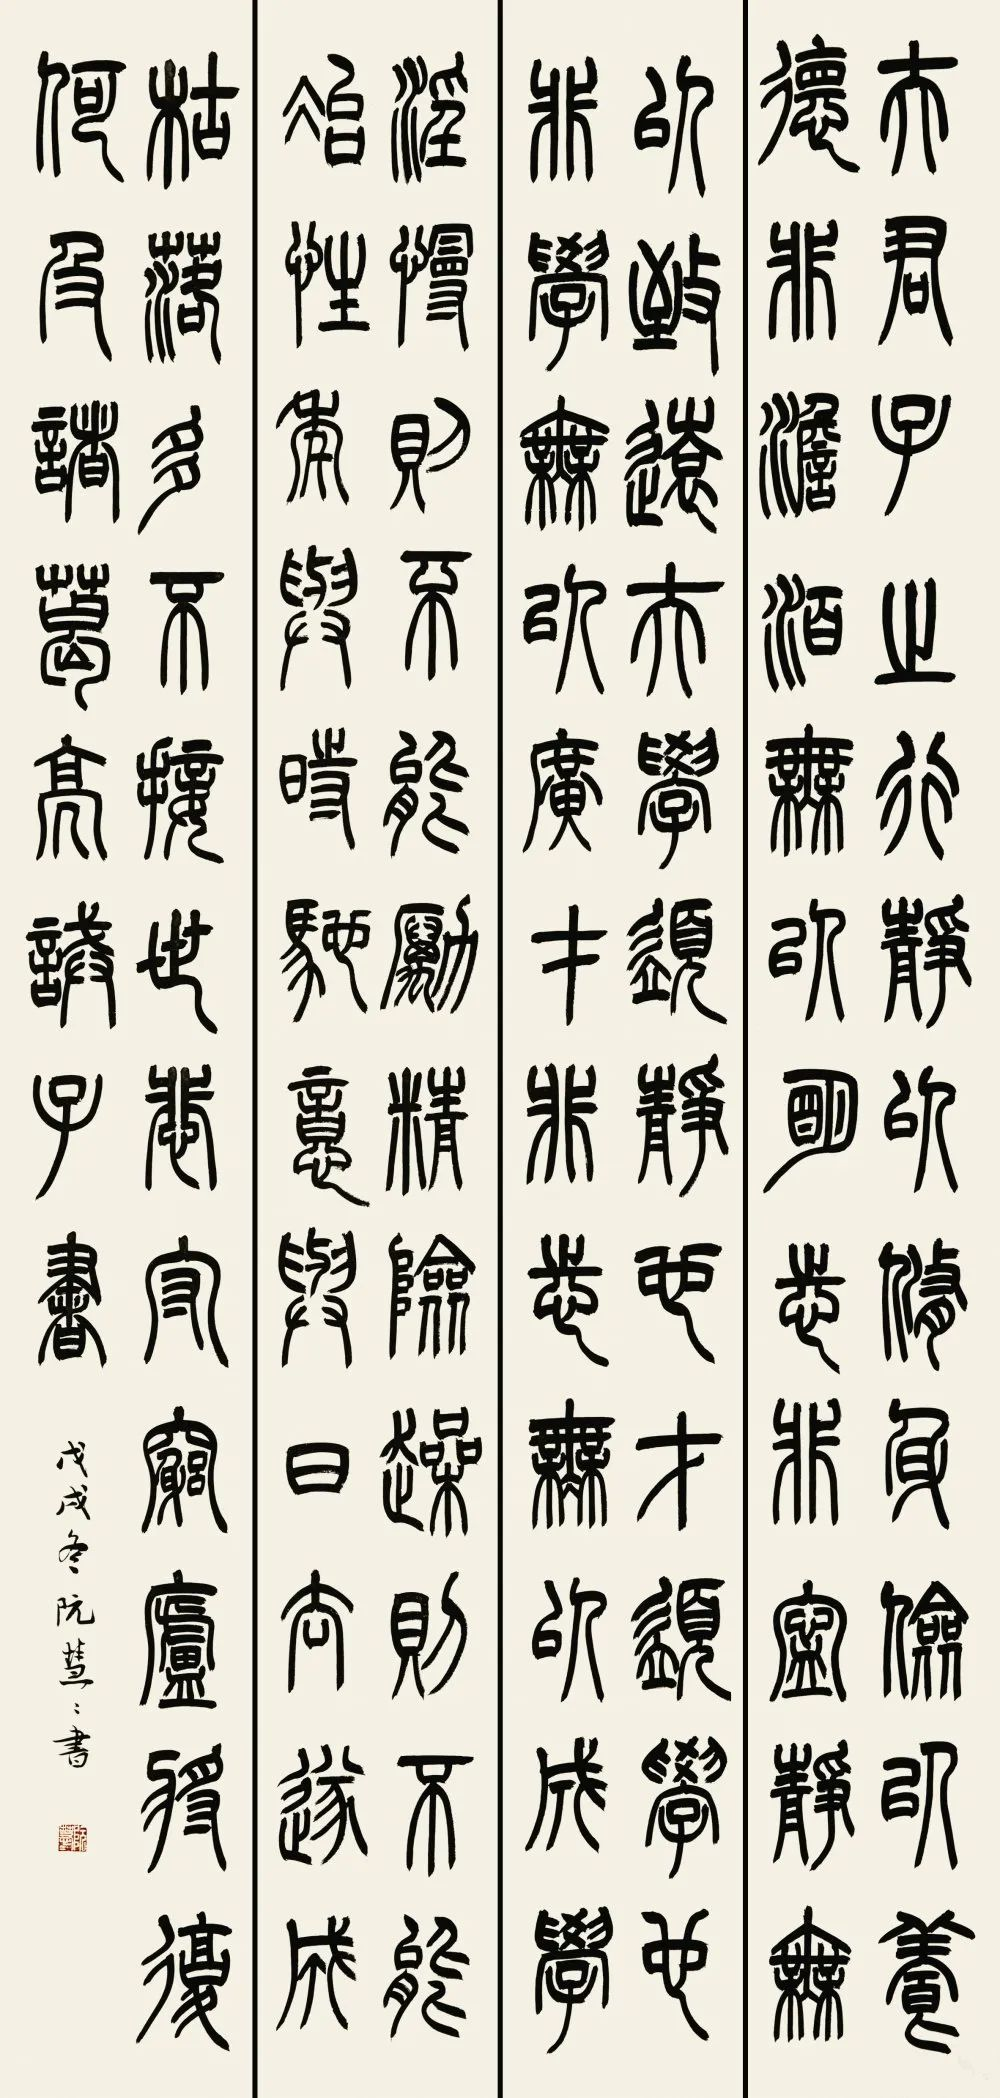 夫君子之行靜以脩身儉以養
德非澹泊無以明志非寧靜無
以致遠夫學須靜也才須學也
非學無以廣才非志無以成學
淫慢則不能勵精險躁則不能
冶性年與時馳意與日去遂成
枯落多不接世悲守窮廬將復
何及諸葛亮誡子書
戊戌冬阮慧〻書